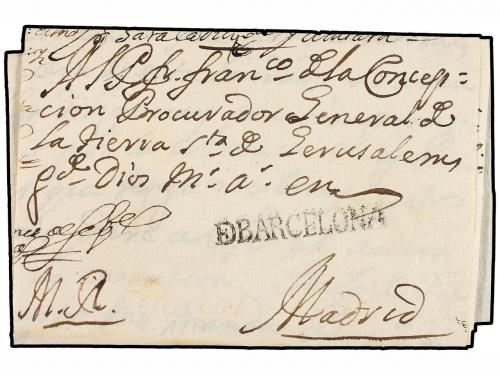 Al P. fr. Franco. de la Concep=
cion Procurador General de
la tierra Sta. de Gerusalem
gde. Dios Ms. As. en
DBARCELONA
M. R.
Madrid